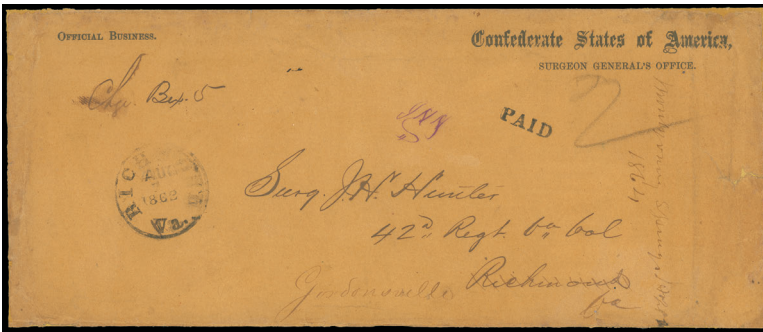 OFFICIAL BUSINESS.
Confederate States of America,
SURGEON GENERAL'S OFFICE.
Chg. Box. 5
PAID
2
RICHMOND
AUG
1862
Va.
Surg. J. H. Hunter
42d Regt. Va Vol
Richmond
Va
Gordonsville